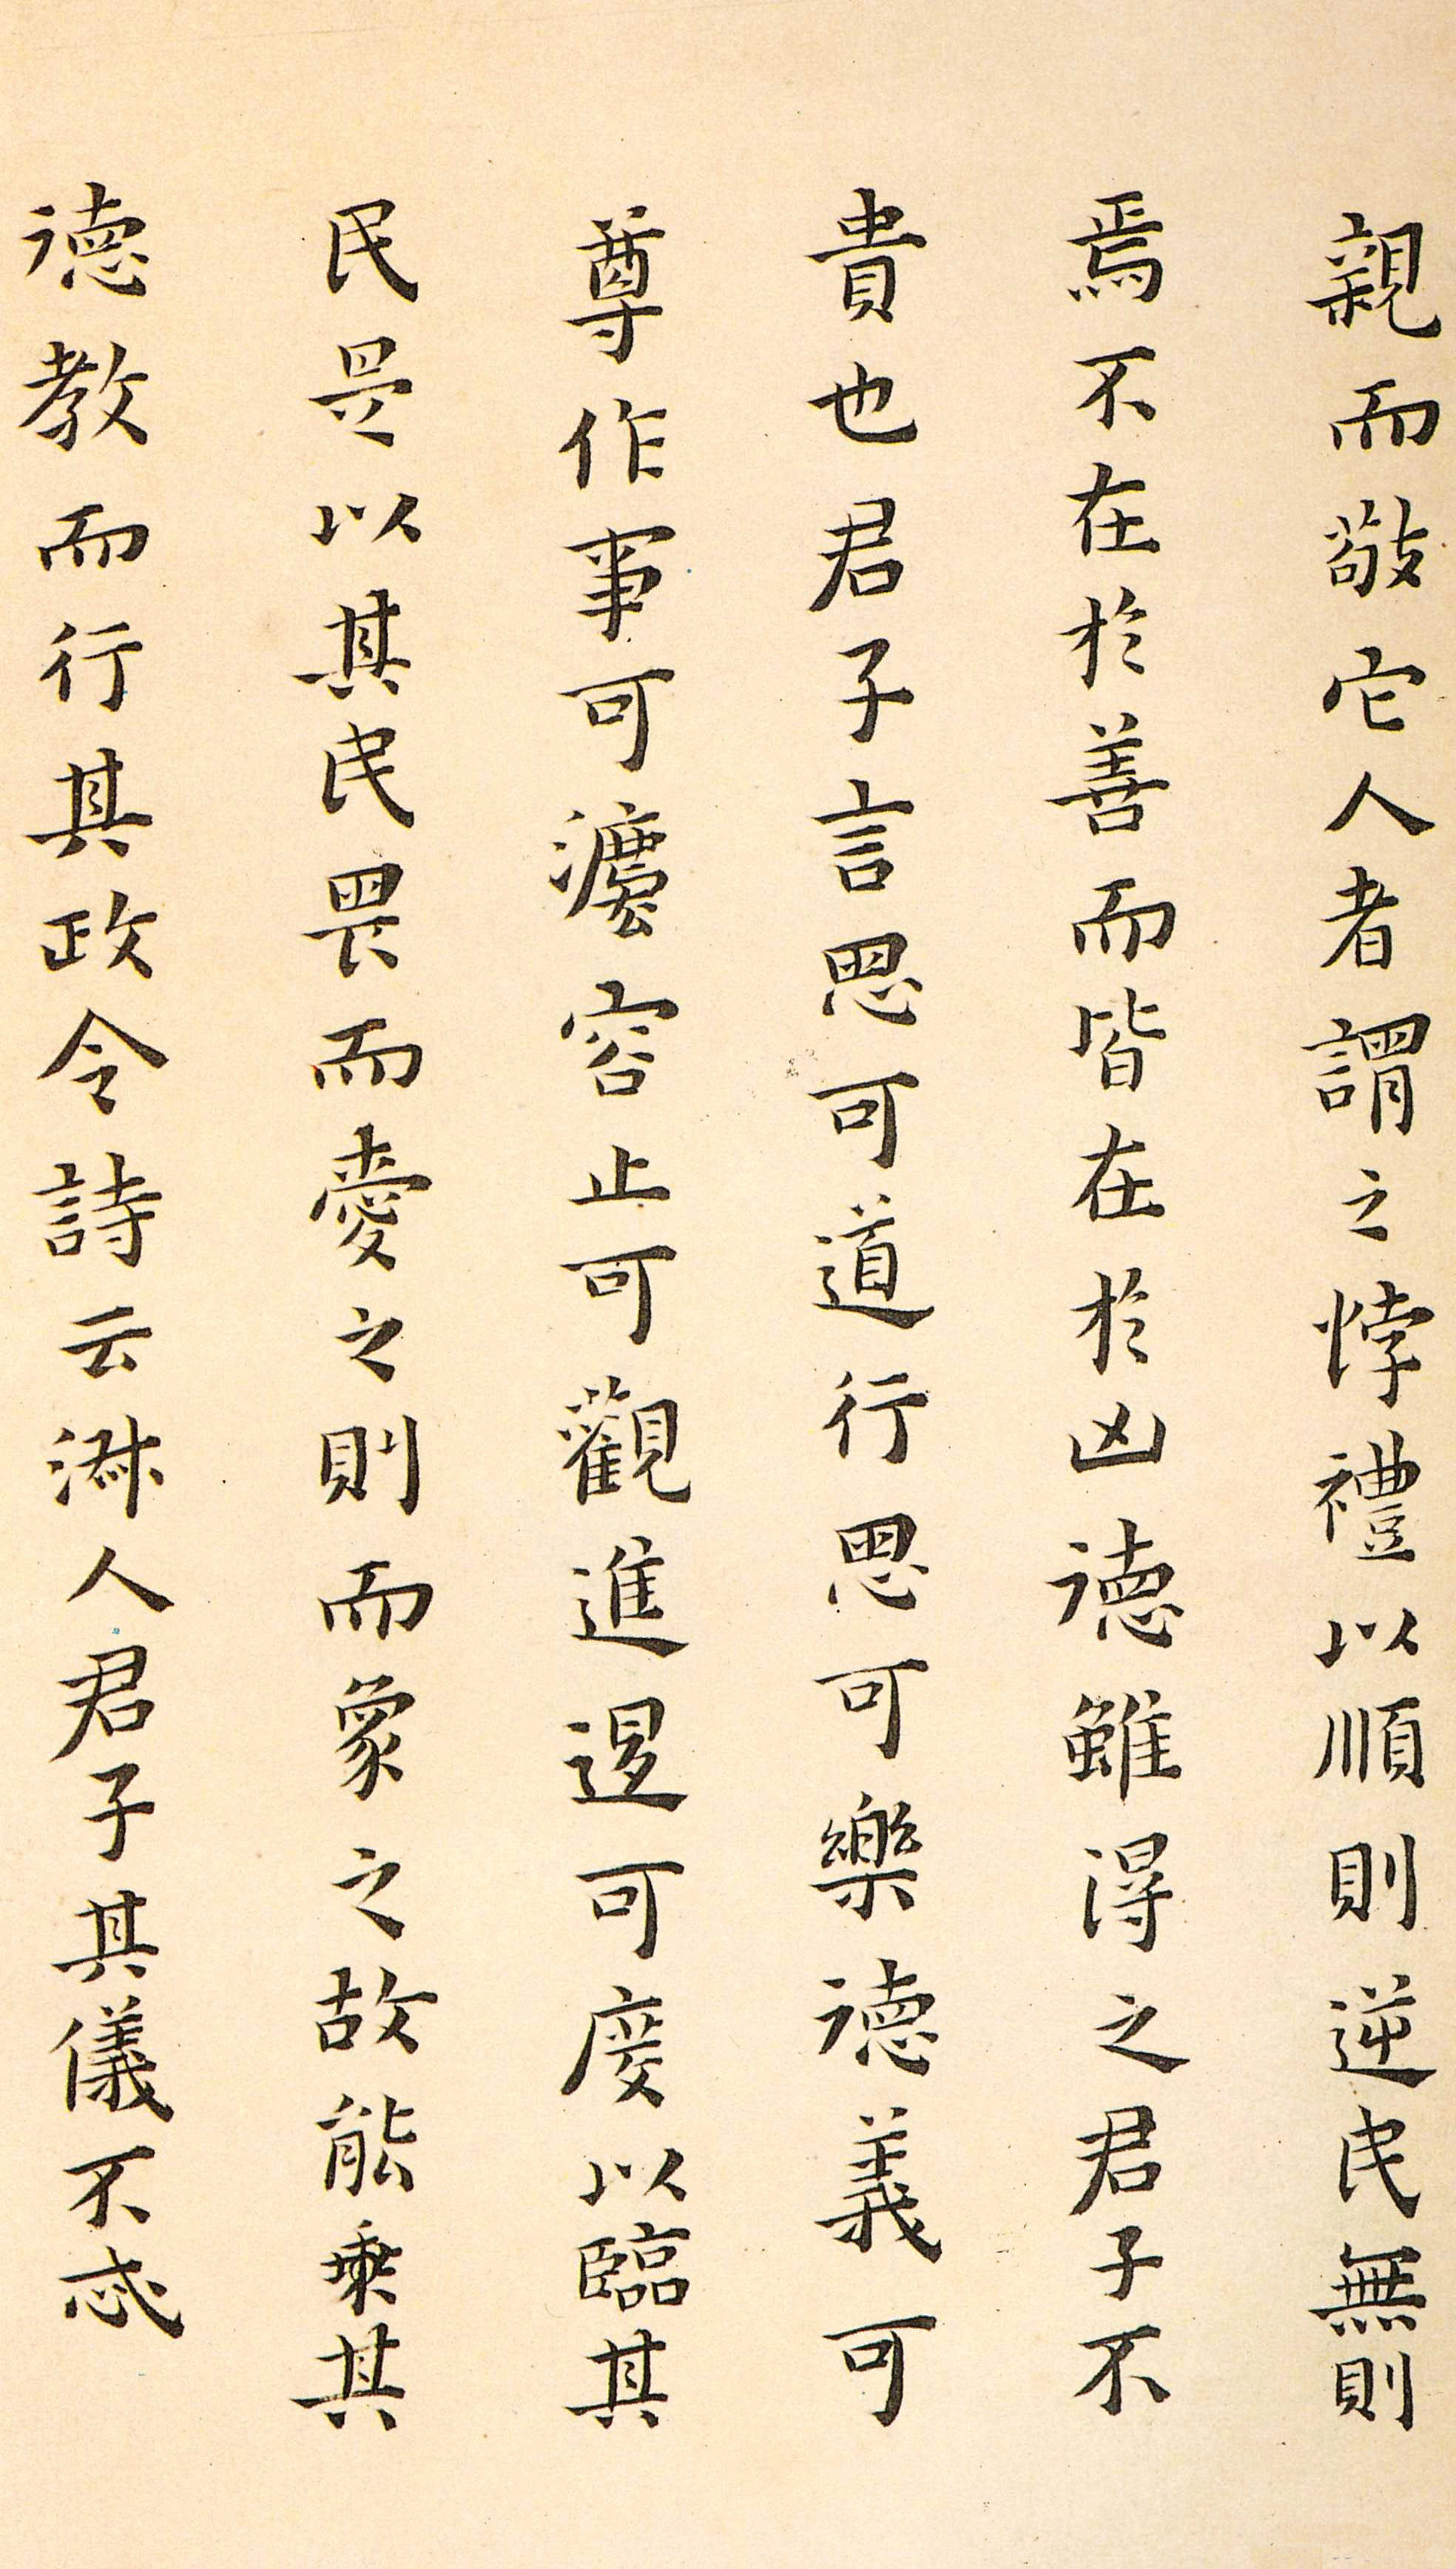 親而敬它人者謂之悖禮以順則逆民無則
焉不在於善而皆在於凶德雖得之君子不
貴也君子言思可道行思可樂德義可
尊作事可灋容止可觀進退可度以臨其
民是以其民畏而愛之則而象之故能乘其
德教而行其政令詩云淋人君子其儀不忒